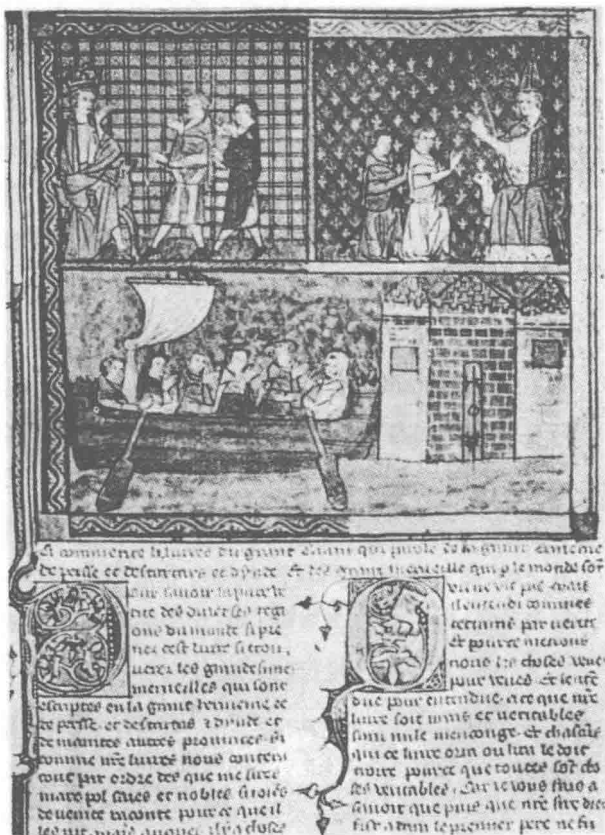 Ci commence li livres du grant chaan qui parole de la grant ermenie
de perse et des tartars et dynde. Et des grant merveille qui p le monde sont
our savoir la pure ve
rite des diverses regi
ons du monde si pre
nez cest livre si trou
verez les grandesime
merveilles qui sont
escriptes en la grant hermenie
de perse et des tartas z dynde et
de maintes autres provinces si
comme nre livres nous contera
tout par ordre des que me sire
marc pol saies et nobles citoies
de venice raconte pour ce que il
les vit mais auques il y a choses
que il ne vit pas mais
il entendi comunes
certains par verite
Et pour ce metrons
nous les choses veues
pour veues. Et len
due pour entendue. a ce que nre
livre soit vrais et veritables
sans nule menconge. Et chascuns
qui ce livre orra ou lira le doit
croire pource que toutes sont cho
ses veritables. Car je vous fais a
savoir que puis que nre sire diex
fist adam le premier pere ne fu